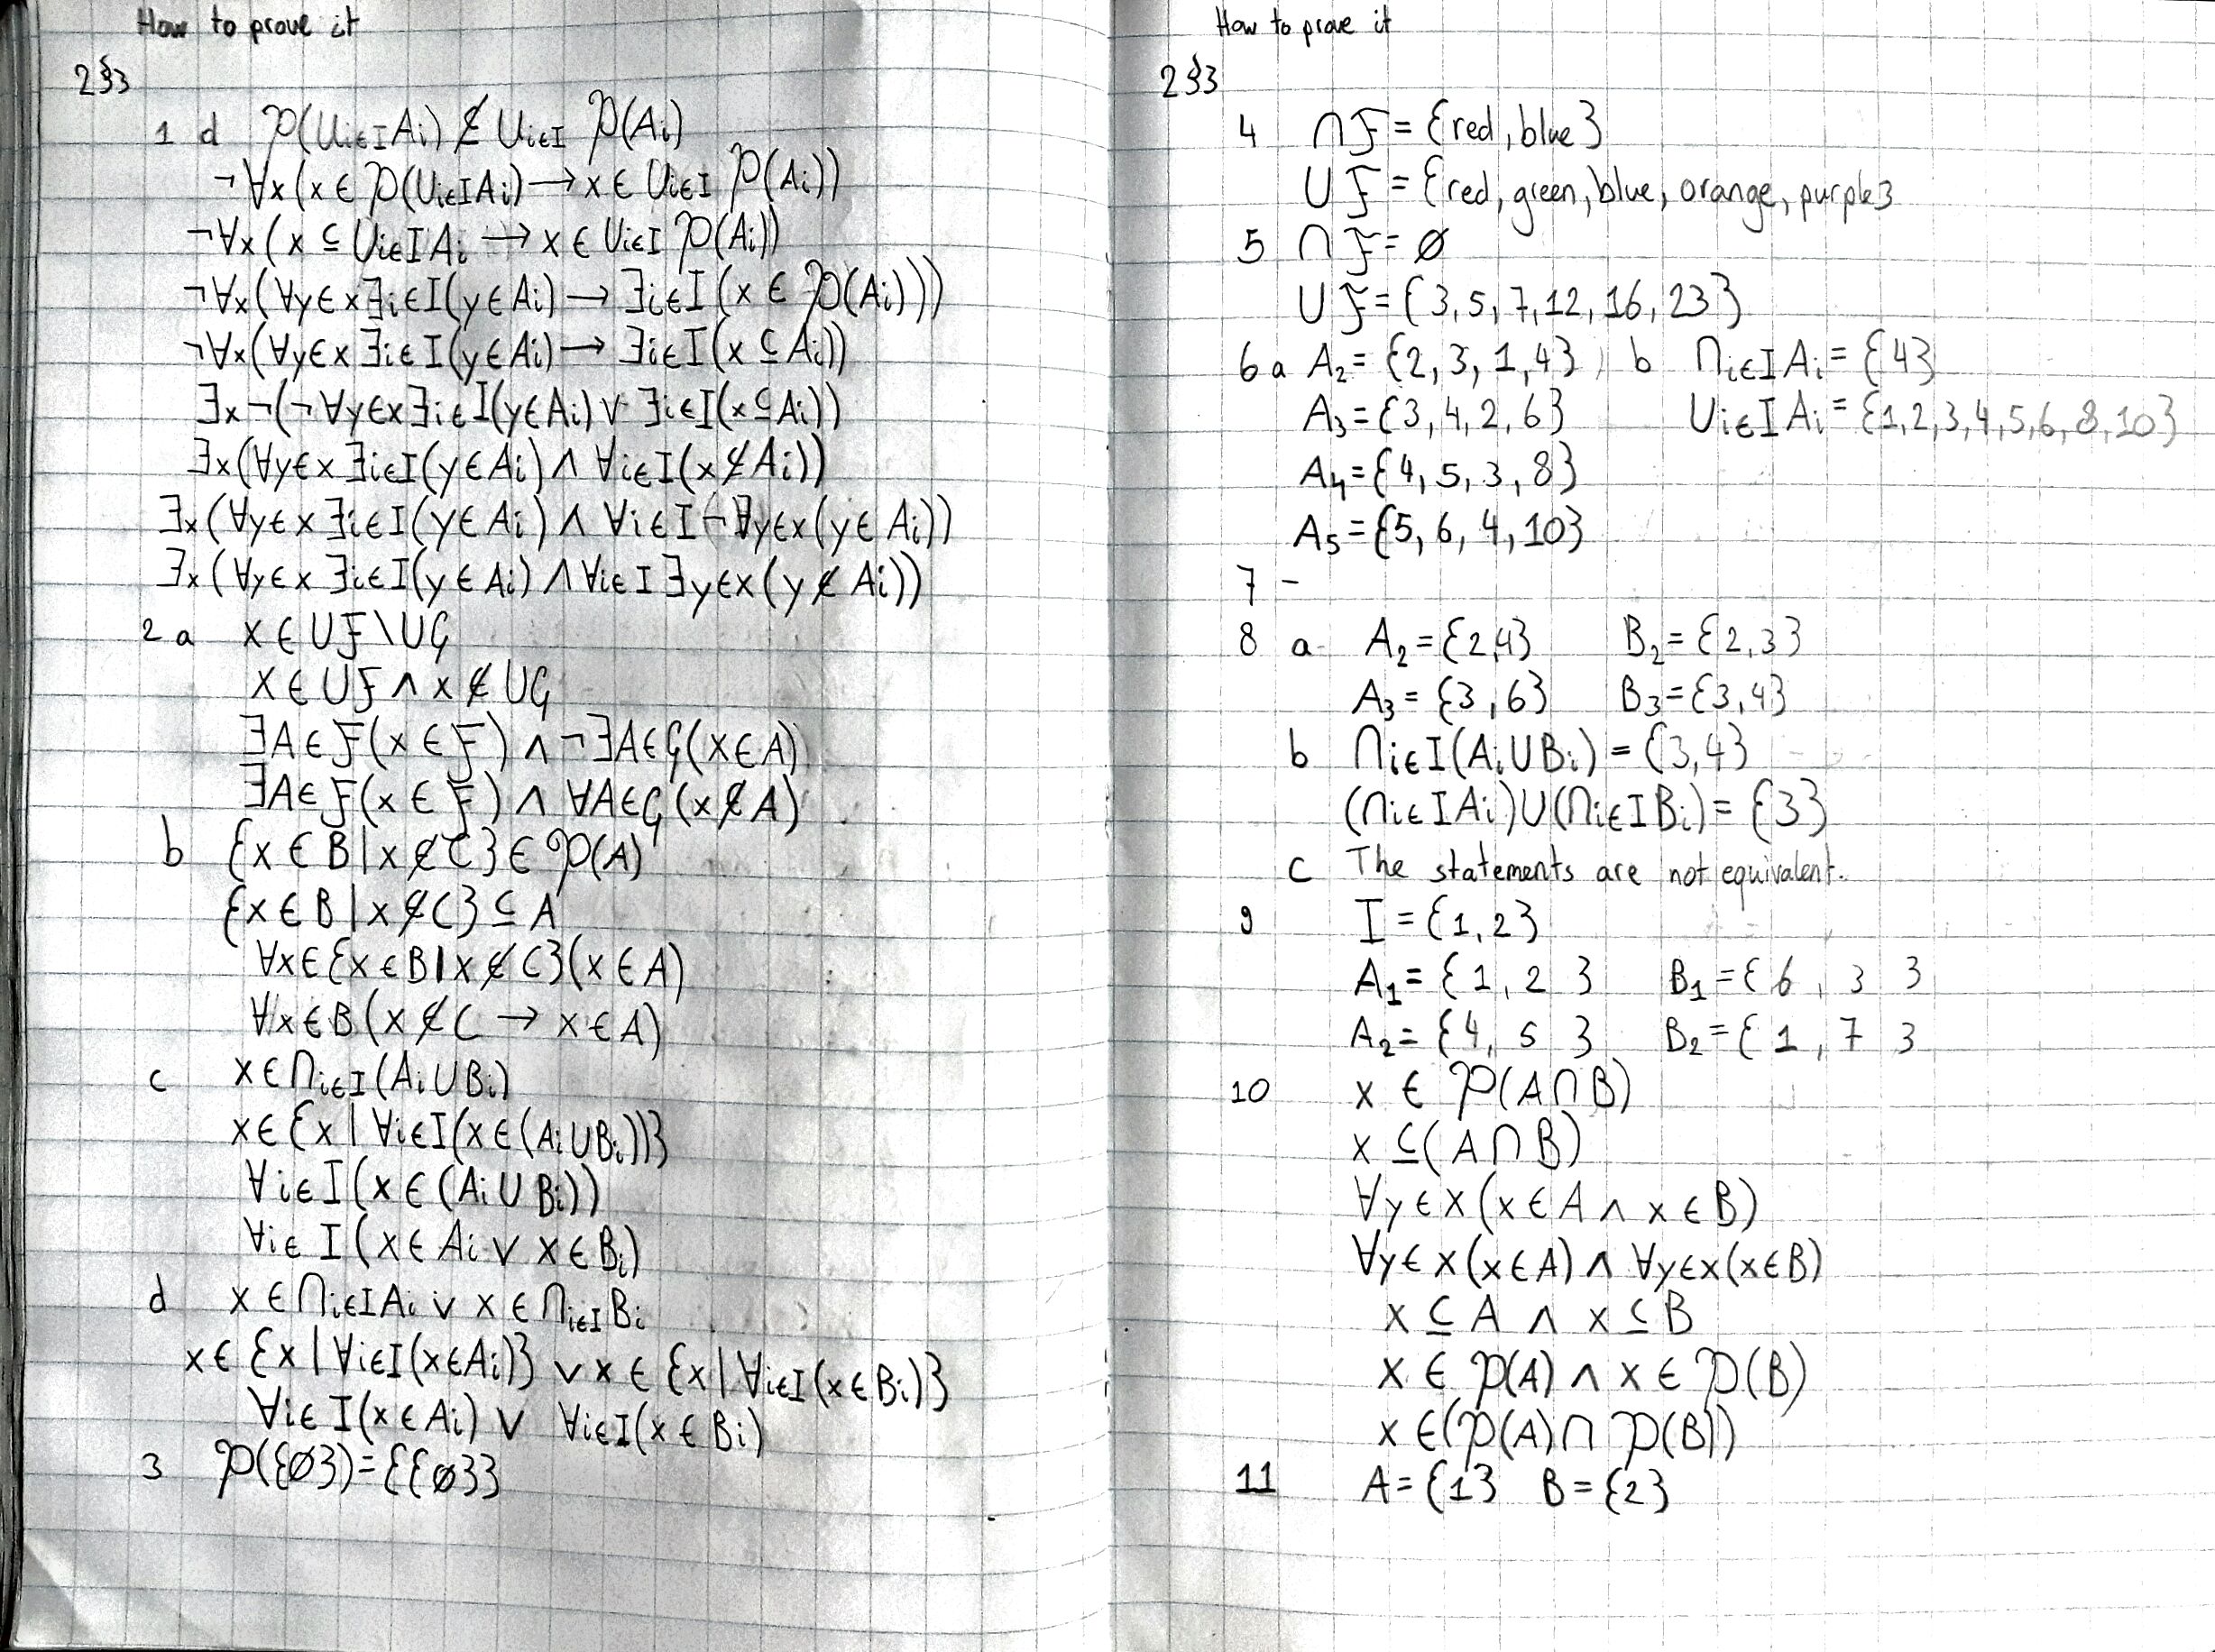 How to prove it
2§3
1 d 𝒫(∪i∈I Ai) ⊈ ∪i∈I 𝒫(Ai)
¬∀x(x ∈ 𝒫(∪i∈I Ai) → x ∈ ∪i∈I 𝒫(Ai))
¬∀x(x ⊆ ∪i∈I Ai → x ∈ ∪i∈I 𝒫(Ai))
¬∀x(∀y∈x∃i∈I(y∈Ai) → ∃i∈I(x ∈ 𝒫(Ai)))
¬∀x(∀y∈x ∃i∈I(y∈Ai) → ∃i∈I(x ⊆ Ai))
∃x¬(¬∀y∈x∃i∈I(y∈Ai) ∨ ∃i∈I(x⊆Ai))
∃x(∀y∈x ∃i∈I(y∈Ai) ∧ ∀i∈I(x⊈Ai))
∃x(∀y∈x ∃i∈I(y∈Ai) ∧ ∀i∈I¬∀y∈x(y∈Ai))
∃x(∀y∈x ∃i∈I(y∈Ai) ∧ ∀i∈I ∃y∈x(y∉Ai))
2 a x ∈ ∪ℱ\∪𝒢
x ∈ ∪ℱ ∧ x ∉ ∪𝒢
∃A∈ℱ(x∈ℱ) ∧ ¬∃A∈𝒢(x∈A)
∃A∈ℱ(x∈ℱ) ∧ ∀A∈𝒢(x∉A)
b {x∈B|x∉C}∈𝒫(A)
{x∈B|x∉C}⊆A
∀x∈{x∈B|x∉C}(x∈A)
∀x∈B(x∉C → x∈A)
c x∈∩i∈I(Ai∪Bi)
x∈{x|∀i∈I(x∈(Ai∪Bi))}
∀i∈I(x∈(Ai∪Bi))
∀i∈I(x∈Ai ∨ x∈Bi)
d x∈∩i∈I Ai ∨ x∈∩i∈I Bi
x∈{x|∀i∈I(x∈Ai)} ∨ x∈{x|∀i∈I(x∈Bi)}
∀i∈I(x∈Ai) ∨ ∀i∈I(x∈Bi)
3 𝒫({∅})={{∅}}
How to prove it
2§3
4 ∩ℱ = {red, blue}
∪ℱ = {red, green, blue, orange, purple}
5 ∩ℱ = ∅
∪ℱ = {3, 5, 7, 12, 16, 23}
6 a A₂ = {2, 3, 1, 4} b ∩i∈I Ai = {4}
A₃ = {3, 4, 2, 6} ∪i∈I Ai = {1,2,3,4,5,6,8,10}
A₄ = {4, 5, 3, 8}
A₅ = {5, 6, 4, 10}
7 -
8 a A₂ = {2,4} B₂ = {2,3}
A₃ = {3,6} B₃ = {3,4}
b ∩i∈I(Ai∪Bi) = {3,4}
(∩i∈I Ai)∪(∩i∈I Bi) = {3}
c The statements are not equivalent.
9 I = {1,2}
A₁ = {1, 2 } B₁ = {6, 3 }
A₂ = {4, 5 } B₂ = {1, 7 }
10 x ∈ 𝒫(A∩B)
x ⊆ (A∩B)
∀y∈x(x∈A ∧ x∈B)
∀y∈x(x∈A) ∧ ∀y∈x(x∈B)
x ⊆ A ∧ x ⊆ B
x ∈ 𝒫(A) ∧ x ∈ 𝒫(B)
x ∈ (𝒫(A)∩𝒫(B))
11 A = {1} B = {2}